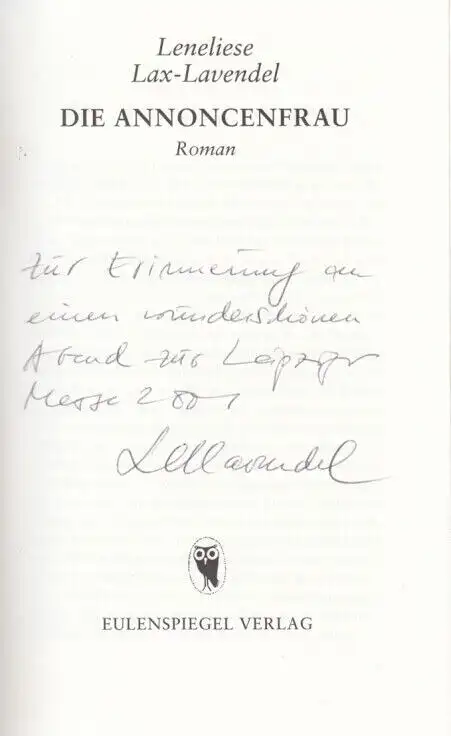 Leneliese
Lax-Lavendel
DIE ANNONCENFRAU
Roman
Zur Erinnerung an
einen wunderschönen
Abend zur Leipziger
Messe 2001
LLLavendel
EULENSPIEGEL VERLAG